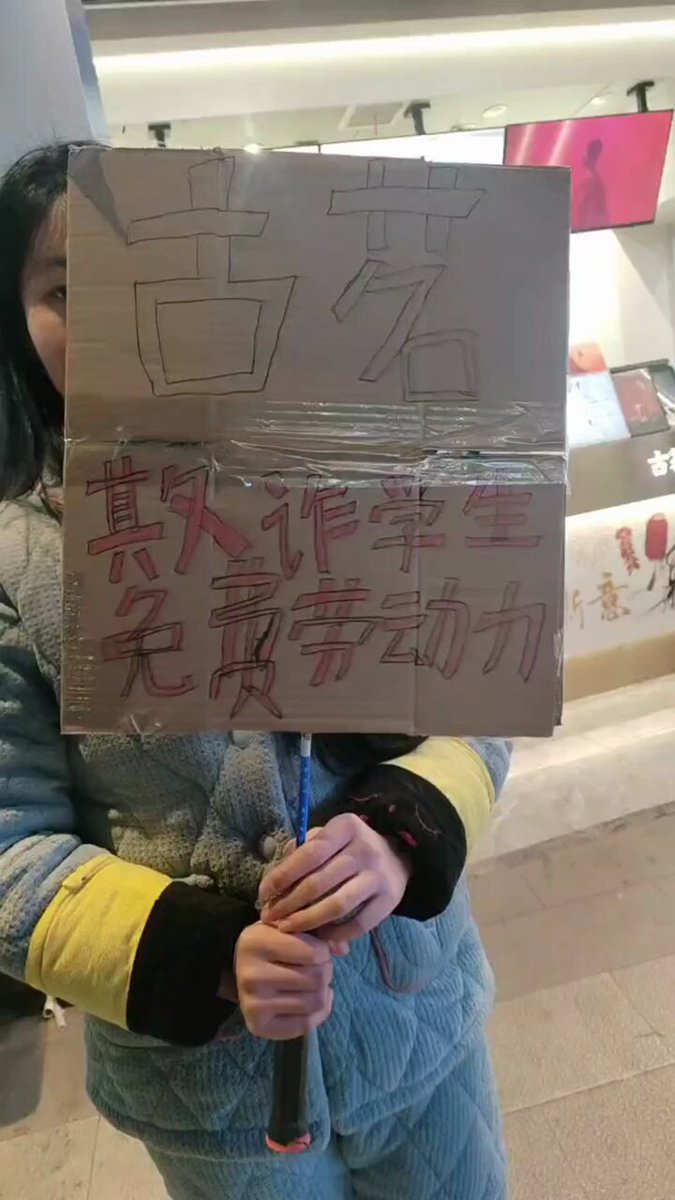 古茗
欺诈学生
免费劳动力
古
意